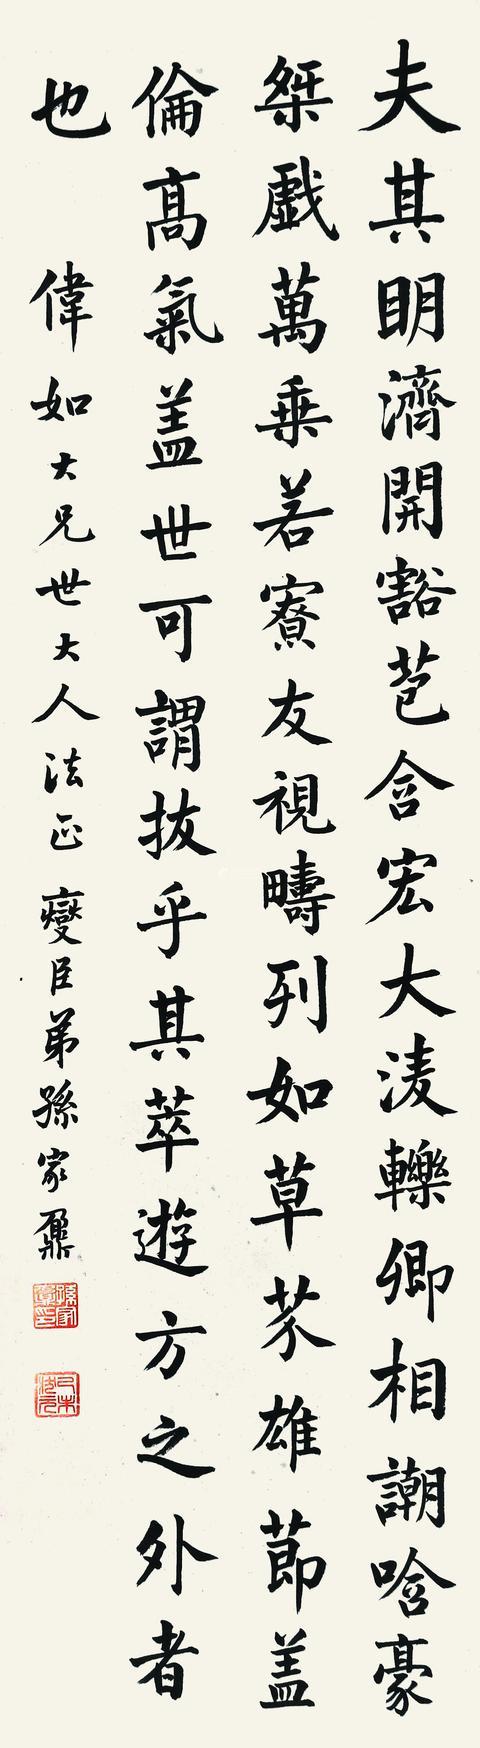 夫其明濟開豁苞含宏大淩轢卿相謿唅豪
桀戲萬乗若寮友視疇列如草芥雄莭盖
倫高氣盖世可謂拔乎其萃遊方之外者
也 偉如大兄世大人法正 燮臣弟孫家鼐
孫家鼐印
己未狀元